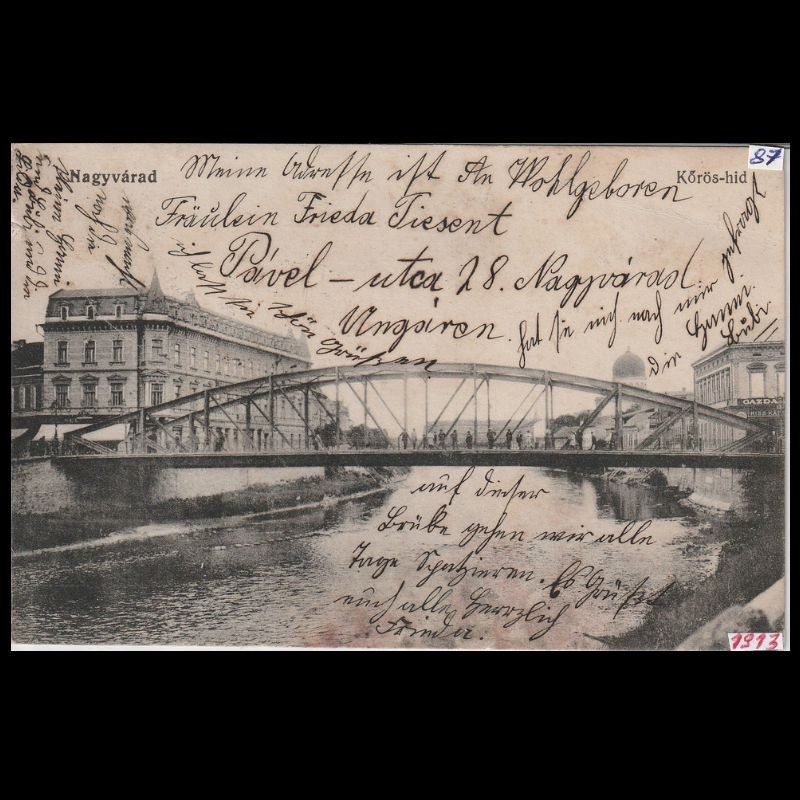 87
Nagyvárad
Kőrös-hid
Meine Adresse ist An Wohlgeboren
Fräulein Frieda Tiesent
Pável - utca 28. Nagyvárad
Ungáren.
ich laß sie schön
Grüßen
hat sie nich nach mir gefragt
die
GAZDA
auf dieser
Brüke gehen wir alle
Tage Spatzieren. Es Grüßt
euch alle Herrzlich
Frieda.
1913